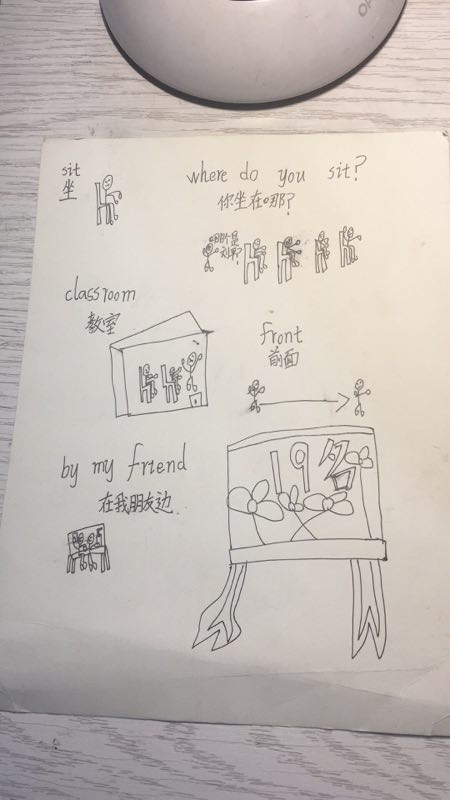 sit
坐
where do you sit?
你坐在哪?
哪个是
classroom
教室
front
前面
by my friend
在我朋友边.
19名